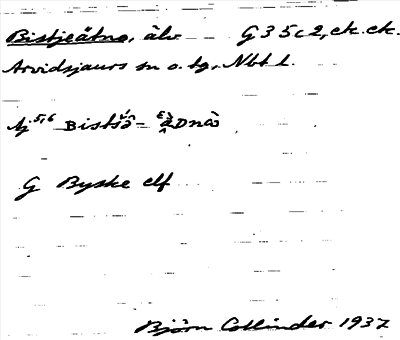 Bistjeätno, älv G 35 c 2, ek. ck.
Arvidsjaurs sn o. tg, Nbt l.
Aj 5,6 Bistšȯ- äDnȧ
G Byske elf
Björn Collinder 1937